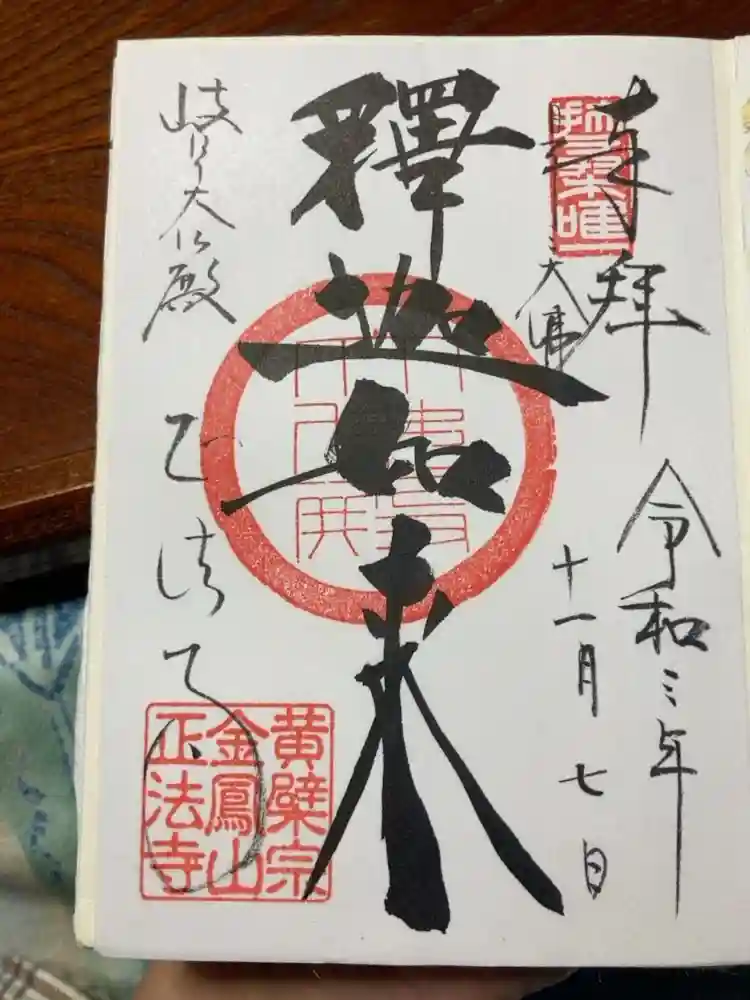 奉拝
三大佛
令和三年
十一月七日
釋迦如来
岐阜大仏殿
正法寺
黄檗宗
金鳳山
正法寺